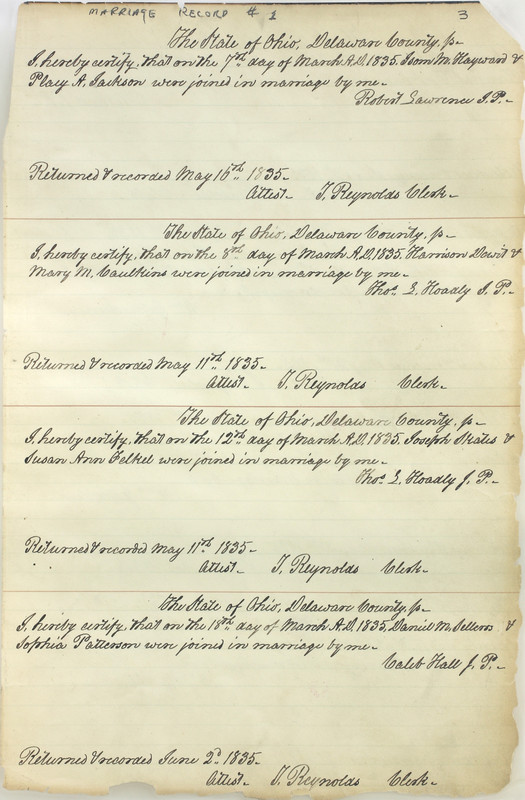 MARRIAGE RECORD # 1 3
The State of Ohio, Delaware County, ss
I, hereby certify, that on the 7th day of March A.D. 1835. Isom M. Hayward &
Placy A. Jackson were joined in marriage by me
Robert Lawrence J.P.
Returned & recorded May 15th 1835
Attest. T. Reynolds Clerk
The State of Ohio, Delaware County, ss
I, hereby certify, that on the 8th day of March A.D. 1835. Harrison Dewit &
Mary M. Caulkins were joined in marriage by me
Thos. E. Hoadly J. P.
Returned & recorded May 11th 1835
Attest. T. Reynolds Clerk
The State of Ohio, Delaware County, ss
I, hereby certify, that on the 12th day of March A.D. 1835. Joseph Skates &
Susan Ann Felkel were joined in marriage by me
Thos. E. Hoadly J. P.
Returned & recorded May 11th 1835
Attest. T. Reynolds Clerk
The State of Ohio, Delaware County, ss
I, hereby certify, that on the 18th day of March A.D. 1835. Daniel M. Sellers &
Sophia Patterson were joined in marriage by me
Caleb Hall J. P.
Returned & recorded June 2d 1835
Attest. T. Reynolds Clerk